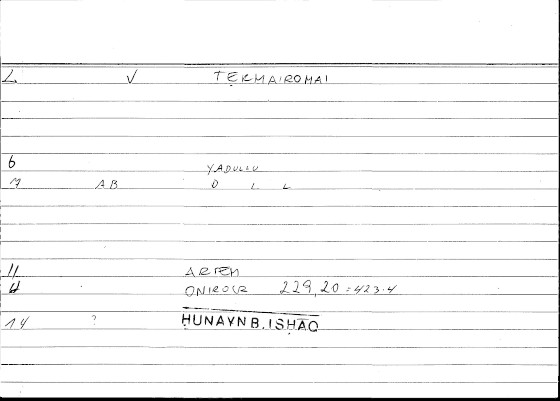 2. V TEKMAIROMAI
6 YADULLU
7 AB D L L
11 ARTEM
12 ONIROCR 229,20 = 423.4
14 ? ḤUNAYN B. ISḤĀQ